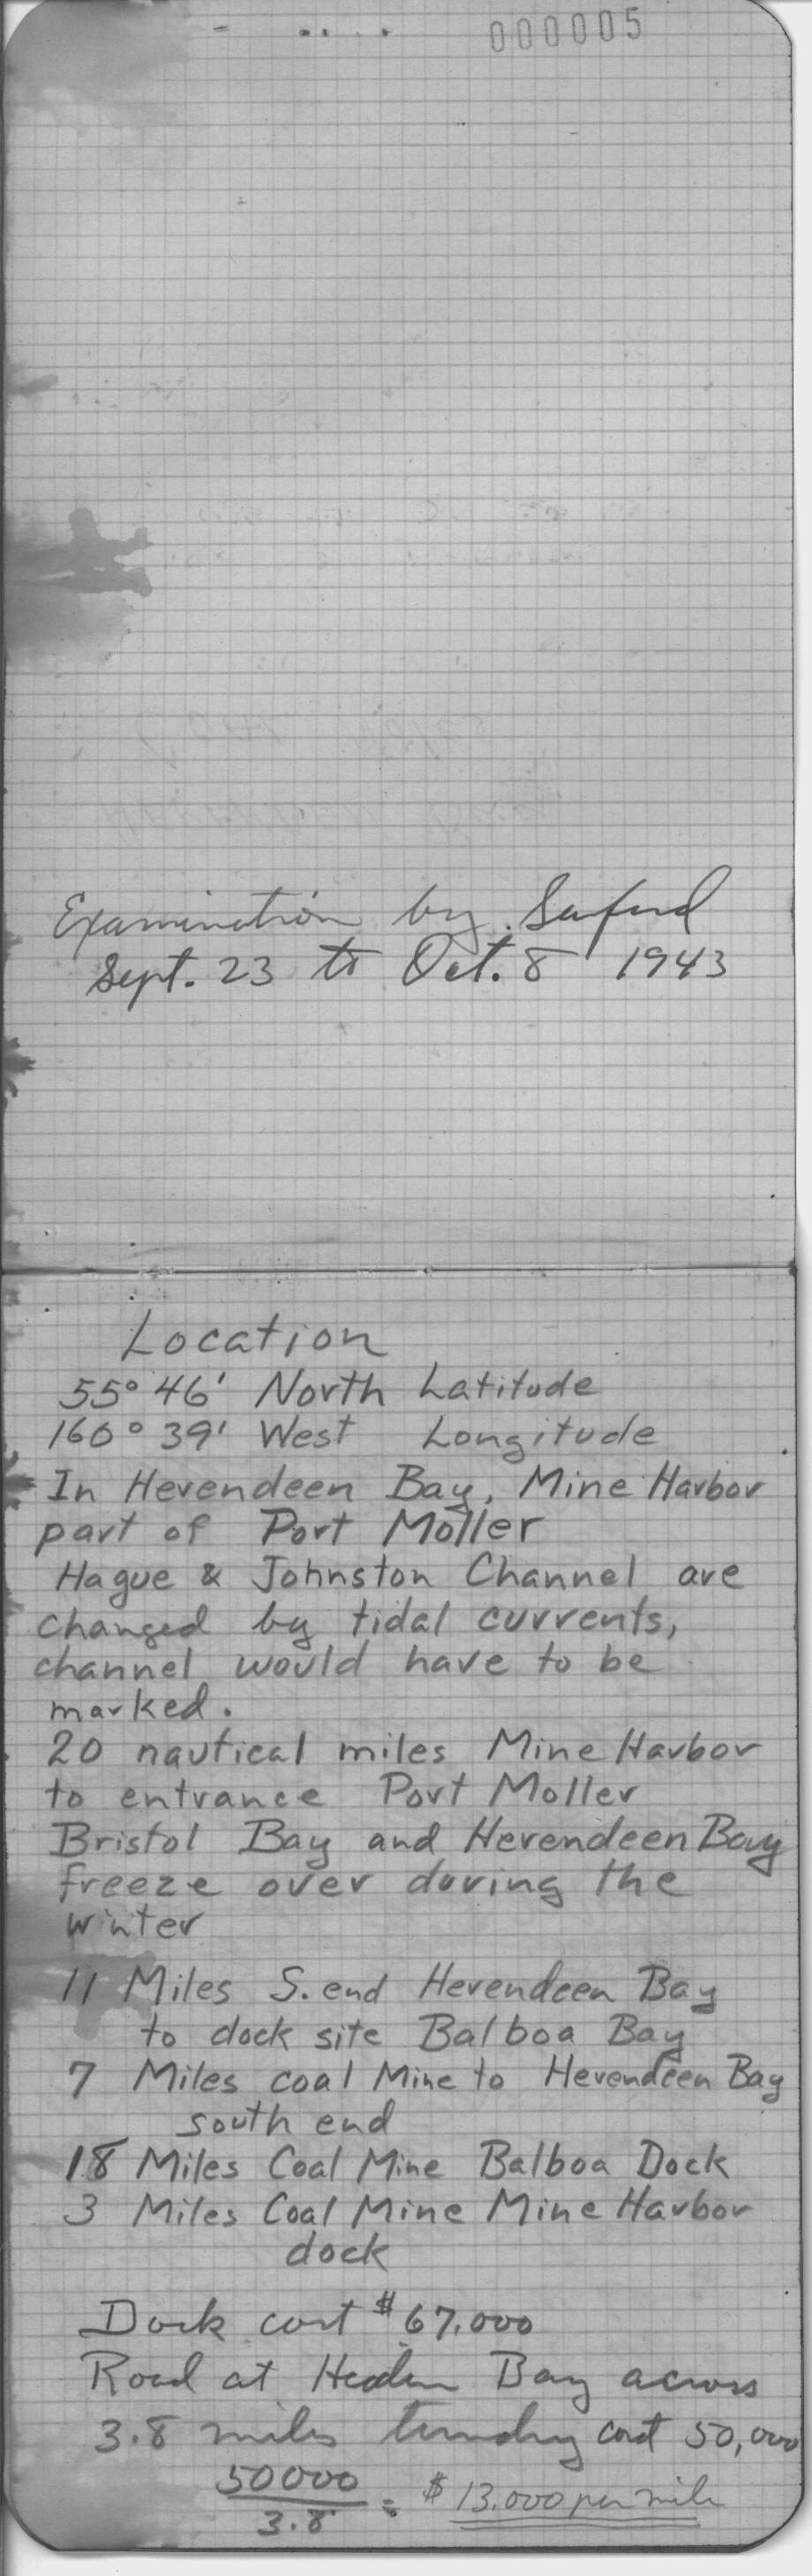 000005
Examination by Sanford
Sept. 23 to Oct. 8 1943
Location
55° 46' North Latitude
160° 39' West Longitude
In Herendeen Bay, Mine Harbor
part of Port Moller
Hague & Johnston Channel are
changed by tidal currents,
channel would have to be
marked.
20 nautical miles Mine Harbor
to entrance Port Moller
Bristol Bay and Herendeen Bay
freeze over during the
winter
11 Miles S. end Herendeen Bay
to dock site Balboa Bay
7 Miles coal Mine to Herendeen Bay
south end
18 Miles Coal Mine Balboa Dock
3 Miles Coal Mine Mine Harbor
dock
Dock cost $67,000
Road at Bay across
3.8 miles cost 50,000
50000
3.8 = $13,000 per mile